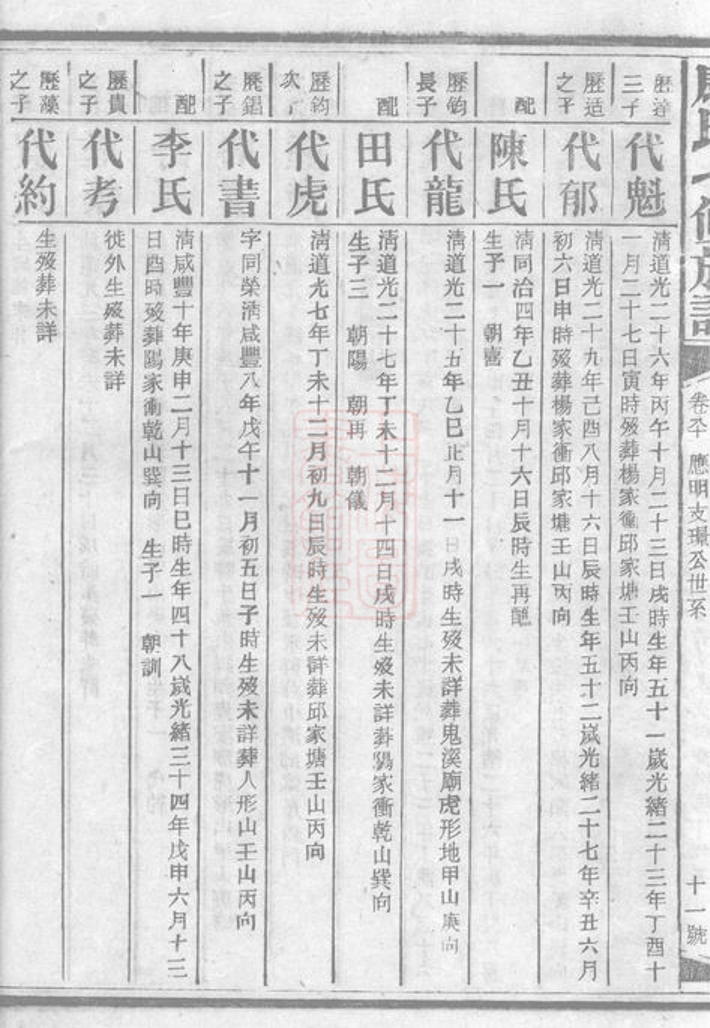 氏
修族譜
卷
應明支璟公世系
十一號
歷達
三子
代魁
清道光二十六年丙午十月二十三日戌時生年五十一歲光緒二十三年丁酉十
一月二十七日寅時歿葬楊家衝邱家塘壬山丙向
歷适
之子
代郁
清道光二十九年己酉八月十六日辰時生年五十二歲光緒二十七年辛丑六月
初六日申時歿葬楊家衝邱家塘壬山丙向
配
陳氏
清同治四年乙丑十月十六日辰時生再醮
生子一 朝喜
歷鈞
長子
代龍
清道光二十五年乙巳正月十一日戌時生歿未詳葬鬼溪廟虎形地甲山庚向
配
田氏
清道光二十七年丁未十二月十四日戌時生歿未詳葬陽家衝乾山巽向
生子三 朝陽 朝再 朝儀
歷鈞
次子
代虎
清道光七年丁未十二月初九日辰時生歿未詳葬邱家塘壬山丙向
歷錩
之子
代書
字同榮清咸豐八年戊午十一月初五日子時生歿未詳葬人形山壬山丙向
配
李氏
清咸豐十年庚申二月十三日巳時生年四十八歲光緒三十四年戊申六月十三
日酉時歿葬陽家衝乾山巽向 生子一 朝訓
歷貴
之子
代考
徙外生歿葬未詳
歷藻
之子
代約
生歿葬未詳